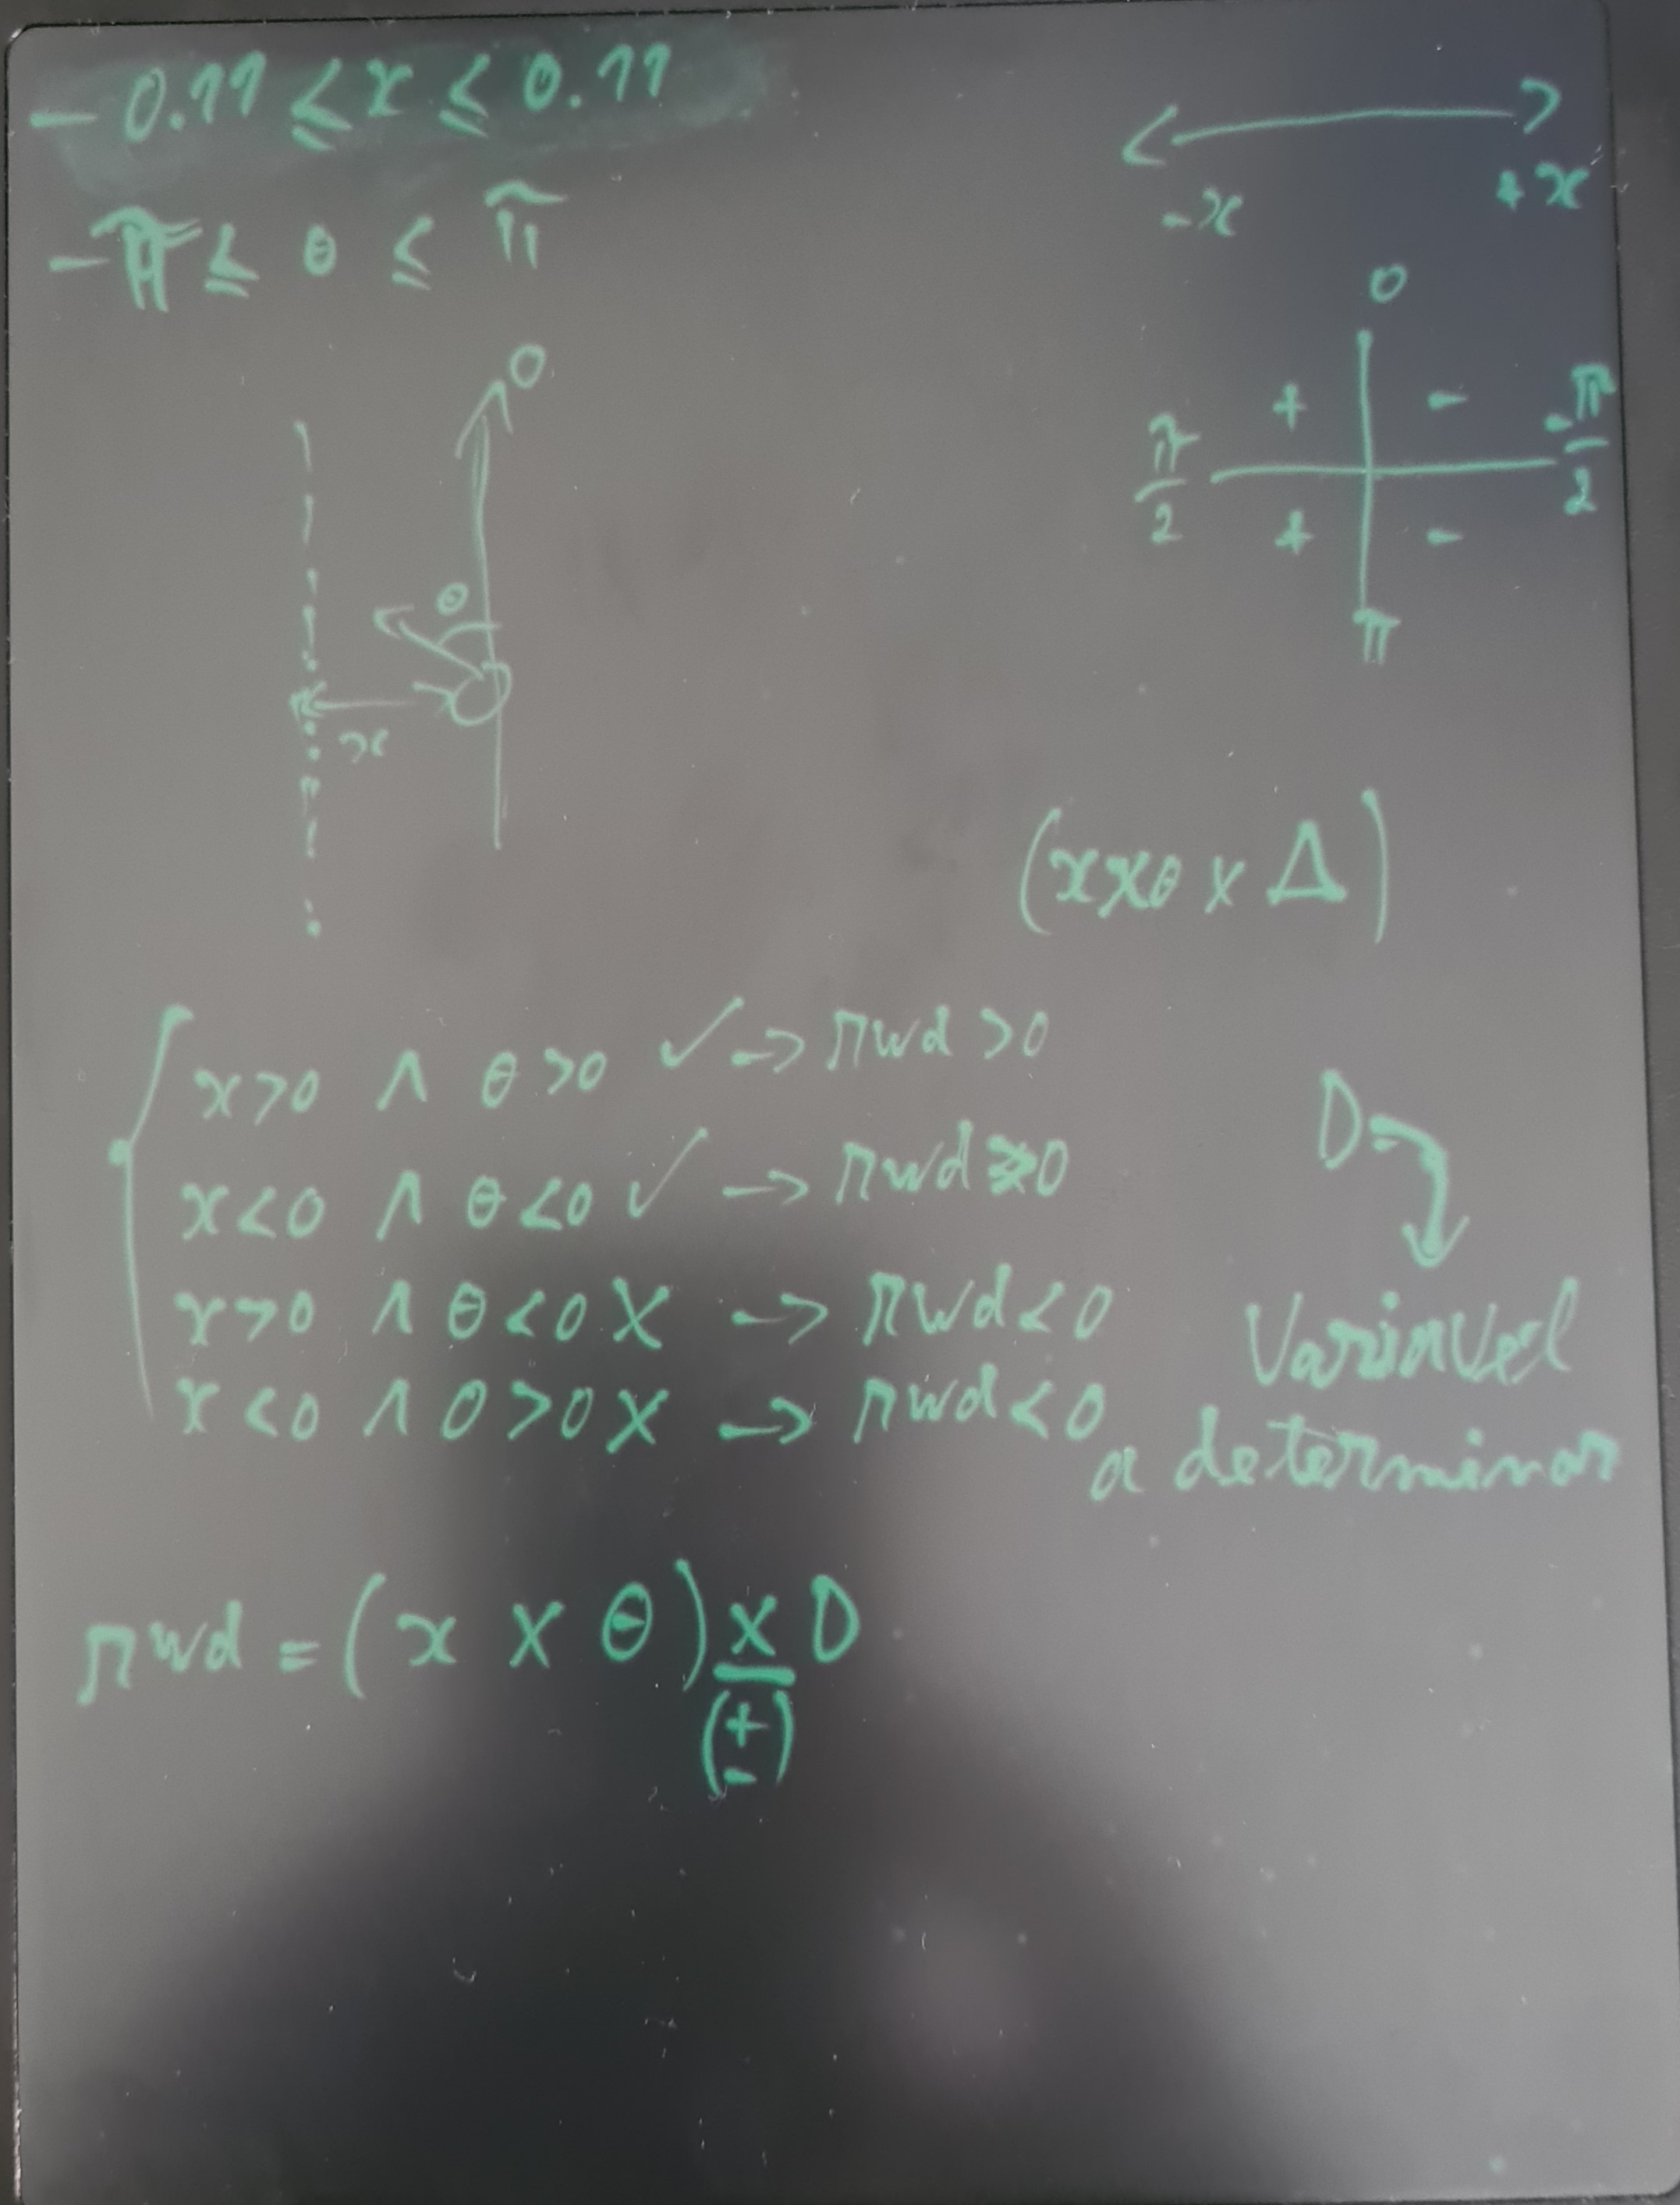 - 0.11 ≤ x ≤ 0.11
-π ≤ θ ≤ π
-x +x
0
+ -
π/2 -π/2
+ -
π
0
θ
x
(x×θ × Δ)
x>0 ∧ θ>0 ✓ → rwd >0
x<0 ∧ θ<0 ✓ → rwd >0
x>0 ∧ θ<0 X → rwd<0
x<0 ∧ θ>0 X → rwd<0
D=
Variavel
a determinar
rwd = (x × θ) × D
(+
-)